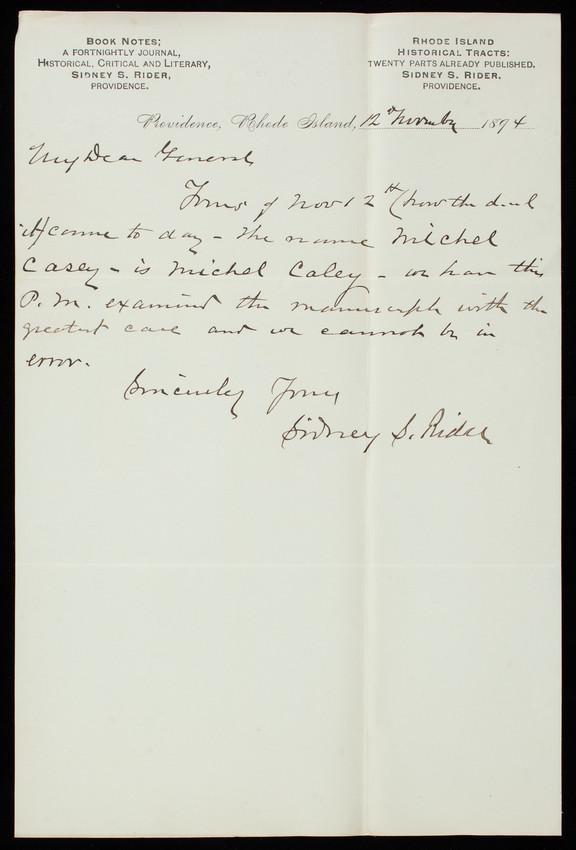 BOOK NOTES;
A FORTNIGHTLY JOURNAL,
HISTORICAL, CRITICAL AND LITERARY,
SIDNEY S. RIDER,
PROVIDENCE.
RHODE ISLAND
HISTORICAL TRACTS:
TWENTY PARTS ALREADY PUBLISHED.
SIDNEY S. RIDER.
PROVIDENCE.
Providence, Rhode Island, 12th November 1894
My Dear General
Yours of Nov 12th (how the devil
it) came to day - The name Michel
Casey - is Michel Caley - we have this
P.M. examined the manuscript with the
greatest care and we cannot be in
error.
Sincerely Yours
Sidney S. Rider